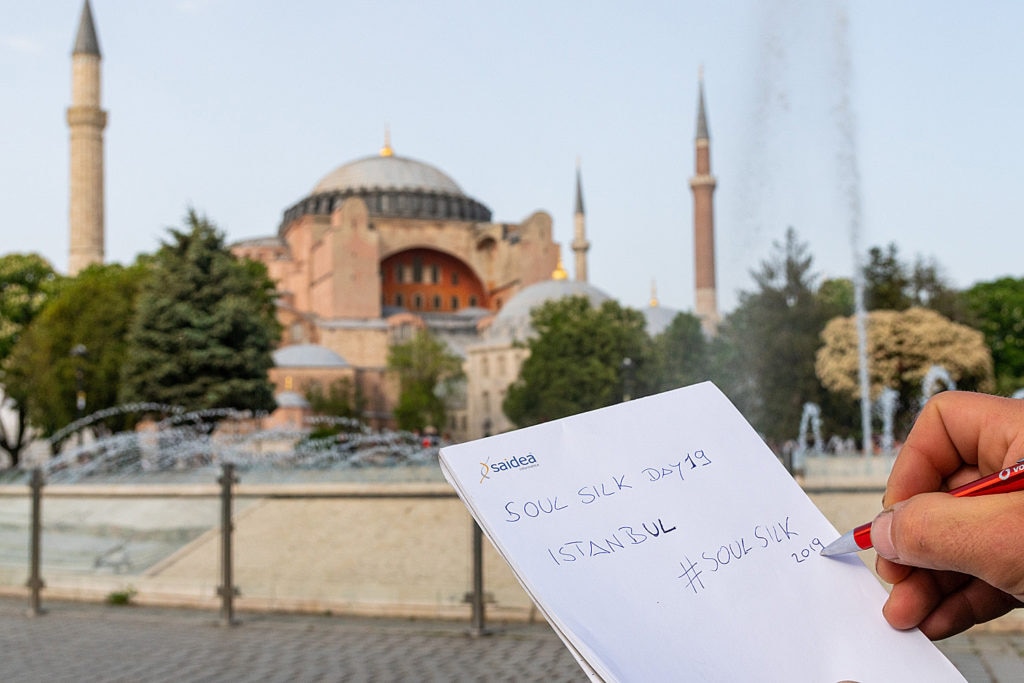 saidea
SOUL SILK DAY 19
ISTANBUL
#SOULSILK
2019